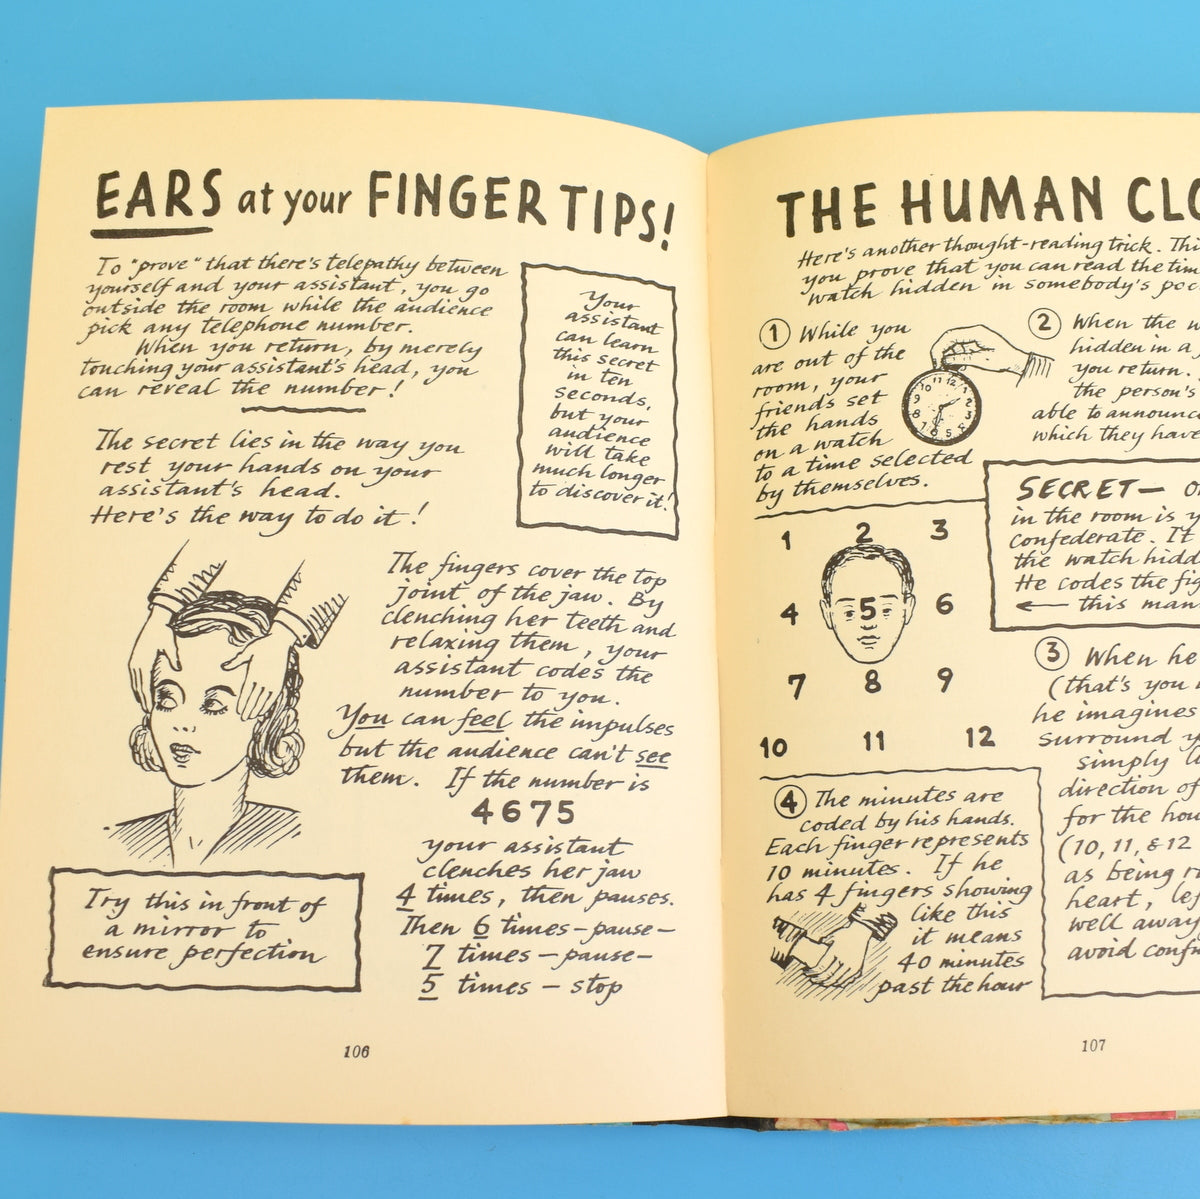 EARS at your FINGER TIPS!
To "prove" that there's telepathy between
yourself and your assistant, you go
outside the room while the audience
pick any telephone number.
When you return, by merely
touching your assistant's head, you
can reveal the number!
Your
assistant
can learn
this secret
in ten
seconds,
but your
audience
will take
much longer
to discover it!
The secret lies in the way you
rest your hands on your
assistant's head.
Here's the way to do it!
The fingers cover the top
joint of the jaw. By
clenching her teeth and
relaxing them, your
assistant codes the
number to you.
You can feel the impulses
but the audience can't see
them. If the number is
4675
your assistant
clenches her jaw
4 times, then pauses.
Then 6 times - pause -
7 times - pause -
5 times - stop
Try this in front of
a mirror to
ensure perfection
106
THE HUMAN CLO
Here's another thought-reading trick. Thi
you prove that you can read the tim
watch hidden in somebody's poc
1 While you
are out of the
room, your
friends set
the hands
on a watch
to a time selected
by themselves.
2 When the w
hidden in a
you return.
the person's
able to announc
which they have
SECRET — O
in the room is y
confederate. It
the watch hidd
He codes the fig
← this man
1 2 3
4 5 6
7 8 9
10 11 12
3 When he
(that's you
he imagines
surround y
simply l
direction of
for the hou
(10, 11, & 12
as being ro
heart, lef
well away
avoid confu
4 The minutes are
coded by his hands.
Each finger represents
10 minutes. If he
has 4 fingers showing
like this
it means
40 minutes
past the hour
107